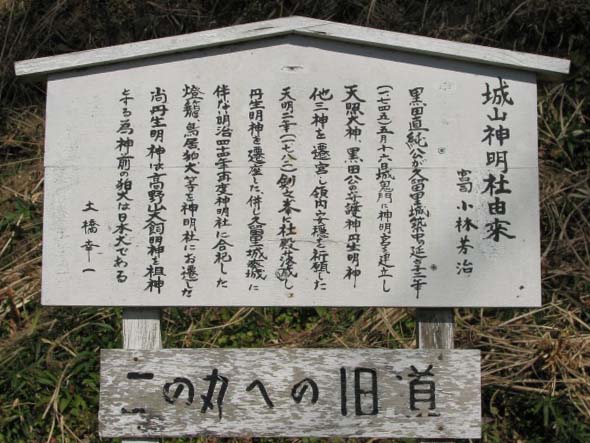 城山神明社由来
宮司 小林芳治
黒田直純公が久留里城築城の延享二年
(一七四五)五月十六日城鬼門に神明宮を建立し
天照大神、黒田公の守護神丹生明神
他三神を遷宮し領内安穏を祈願した
天明二年(一七八二)剣ヶ峯に社殿落成し
丹生明神を遷座した、併し久留里城廃城に
伴ない明治四十四年再度神明社に合祀した
燈籠、鳥居狛犬等を神明社にお遷した
尚丹生明神は高野山犬飼明神を祖神
とする為神前の狛犬は日本犬である
土橋幸一
二の丸への旧道